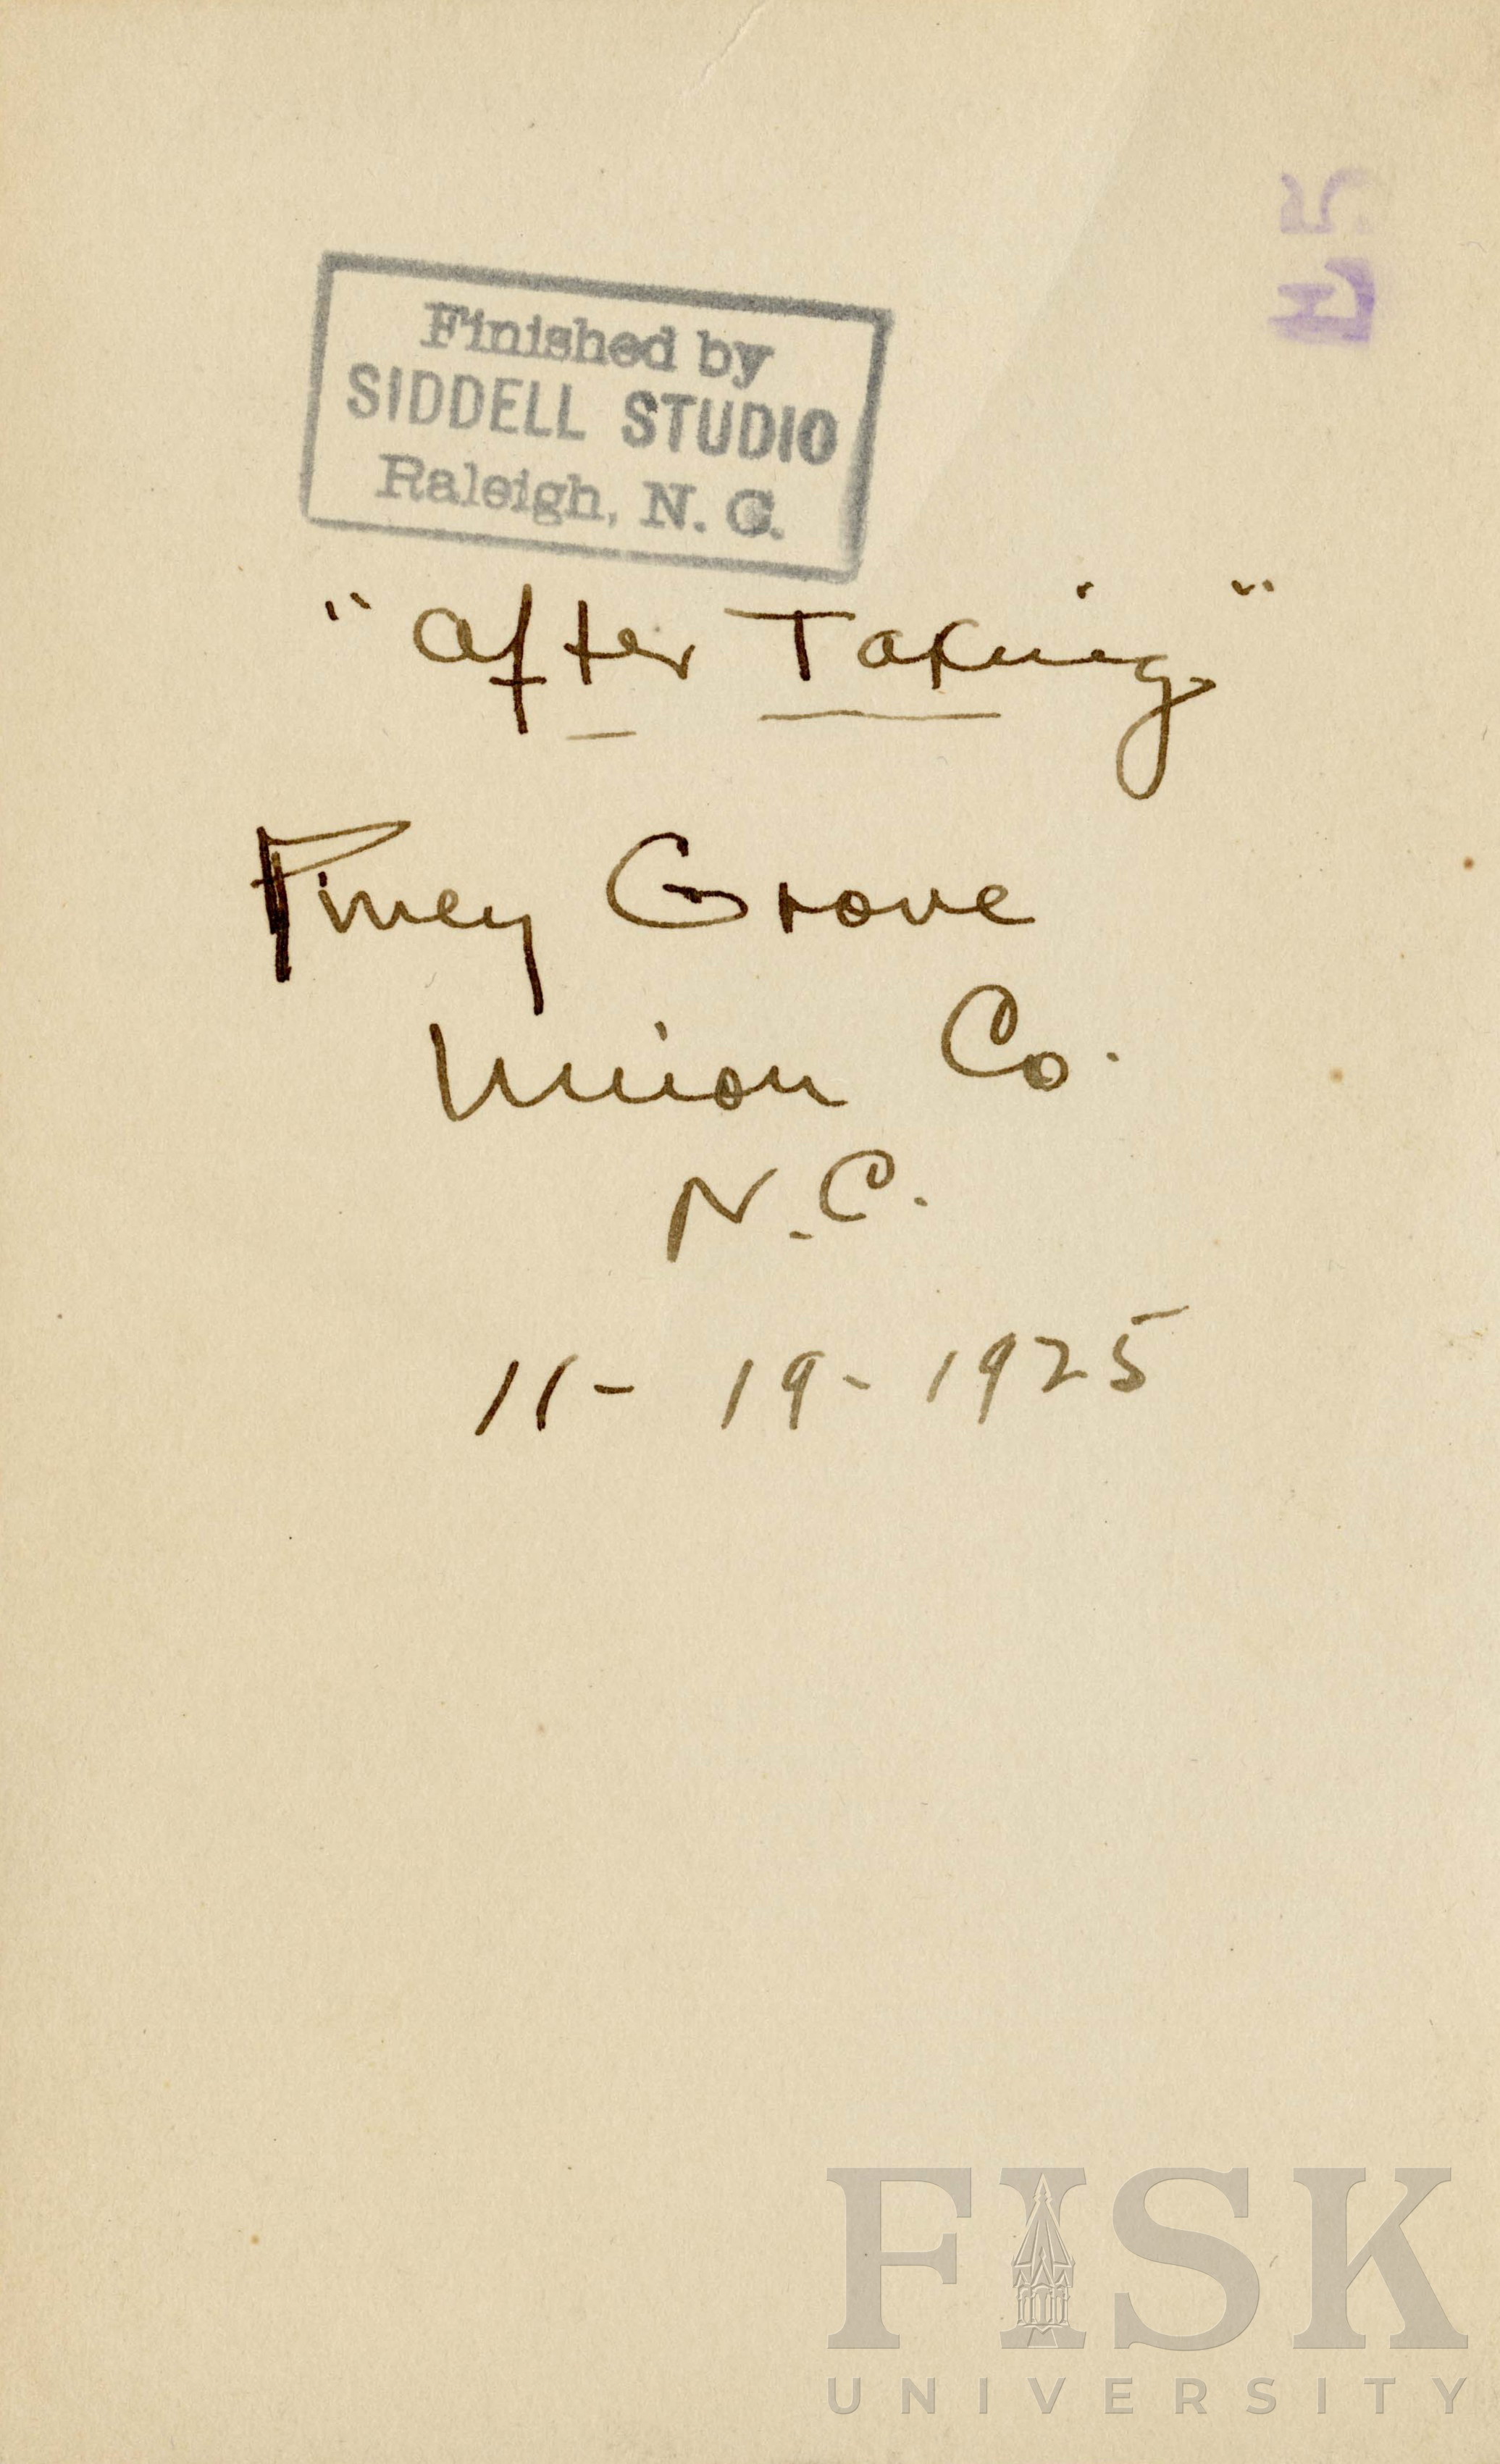 Finished by
SIDDELL STUDIO
Raleigh, N. C.
"After Taking"
Piney Grove
Union Co.
N.C.
11-19-1925
FISK
UNIVERSITY